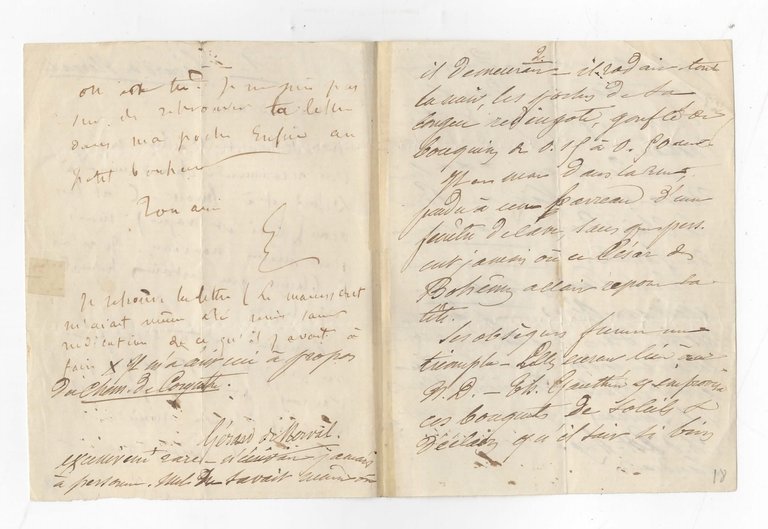 on
tu. Je ne suis pas
sur de retrouver ta lettre
dans ma poche Enfin au
petit bonheur
Ton ami
Je retrouve ta lettre (Le manuscrit
m'avait même été remis sans
indication de ce qu'il y avait à
faire X Il m'a à propos
Du Chem. de Compiègne.
Gérard de Nerval.
rares il n'écrivait jamais
à personne. Nul ne savait même où
2
il demeurait il rodait toute
la nuit, les poches de sa
longue redingote, gonflées de
bouquins de 0.15 à 0.50
Mort dans la rue,
pendu à un barreau d'une
fenêtre de cave, sans que personne
eut jamais où ce César de
Bohême allait reposer sa
tête.
Ses obsèques furent un
triomphe
N. D. — Th. Gauthier y
ces bouquets de soleils &
d'éclairs qu'il sait si bien
18